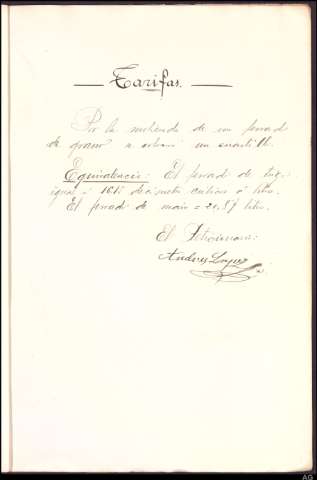 Tarifas.
Por la molienda de un ferrado
de grano se cobrará un cuartillo.
Equivalencia: El ferrado de trigo
igual á 16.15 decímetros cúbicos ó litros.
El ferrado de maíz = 20.87 litros.
El
Andres Lopez
AG